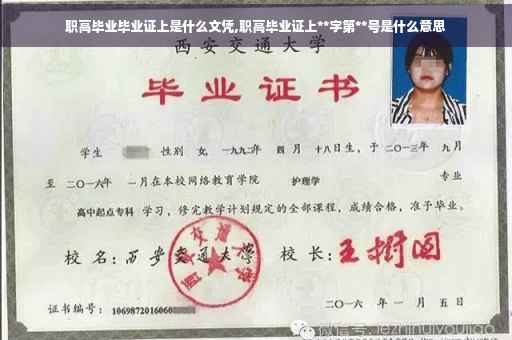 职高毕业毕业证上是什么文凭,职高毕业证上**字第**号是什么意思
西安交通大学
毕业证书
学生 性别 女, 一九九二年 四 月 十八日生, 于 二〇一三年 九月
至 二〇一六年 一月在本校网络教育学院 护理学 专业
高中起点专科 学习, 修完教学计划规定的全部课程, 成绩合格, 准予毕业。
校 名: 西安交通大学 校 长: 王树国
证书编号: 1069872016060
二〇一六 年 一 月 五 日
微信号: jezhihuiyoujiao